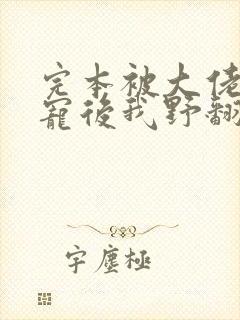 完本被大佬
寵後我野翻
宇塵極